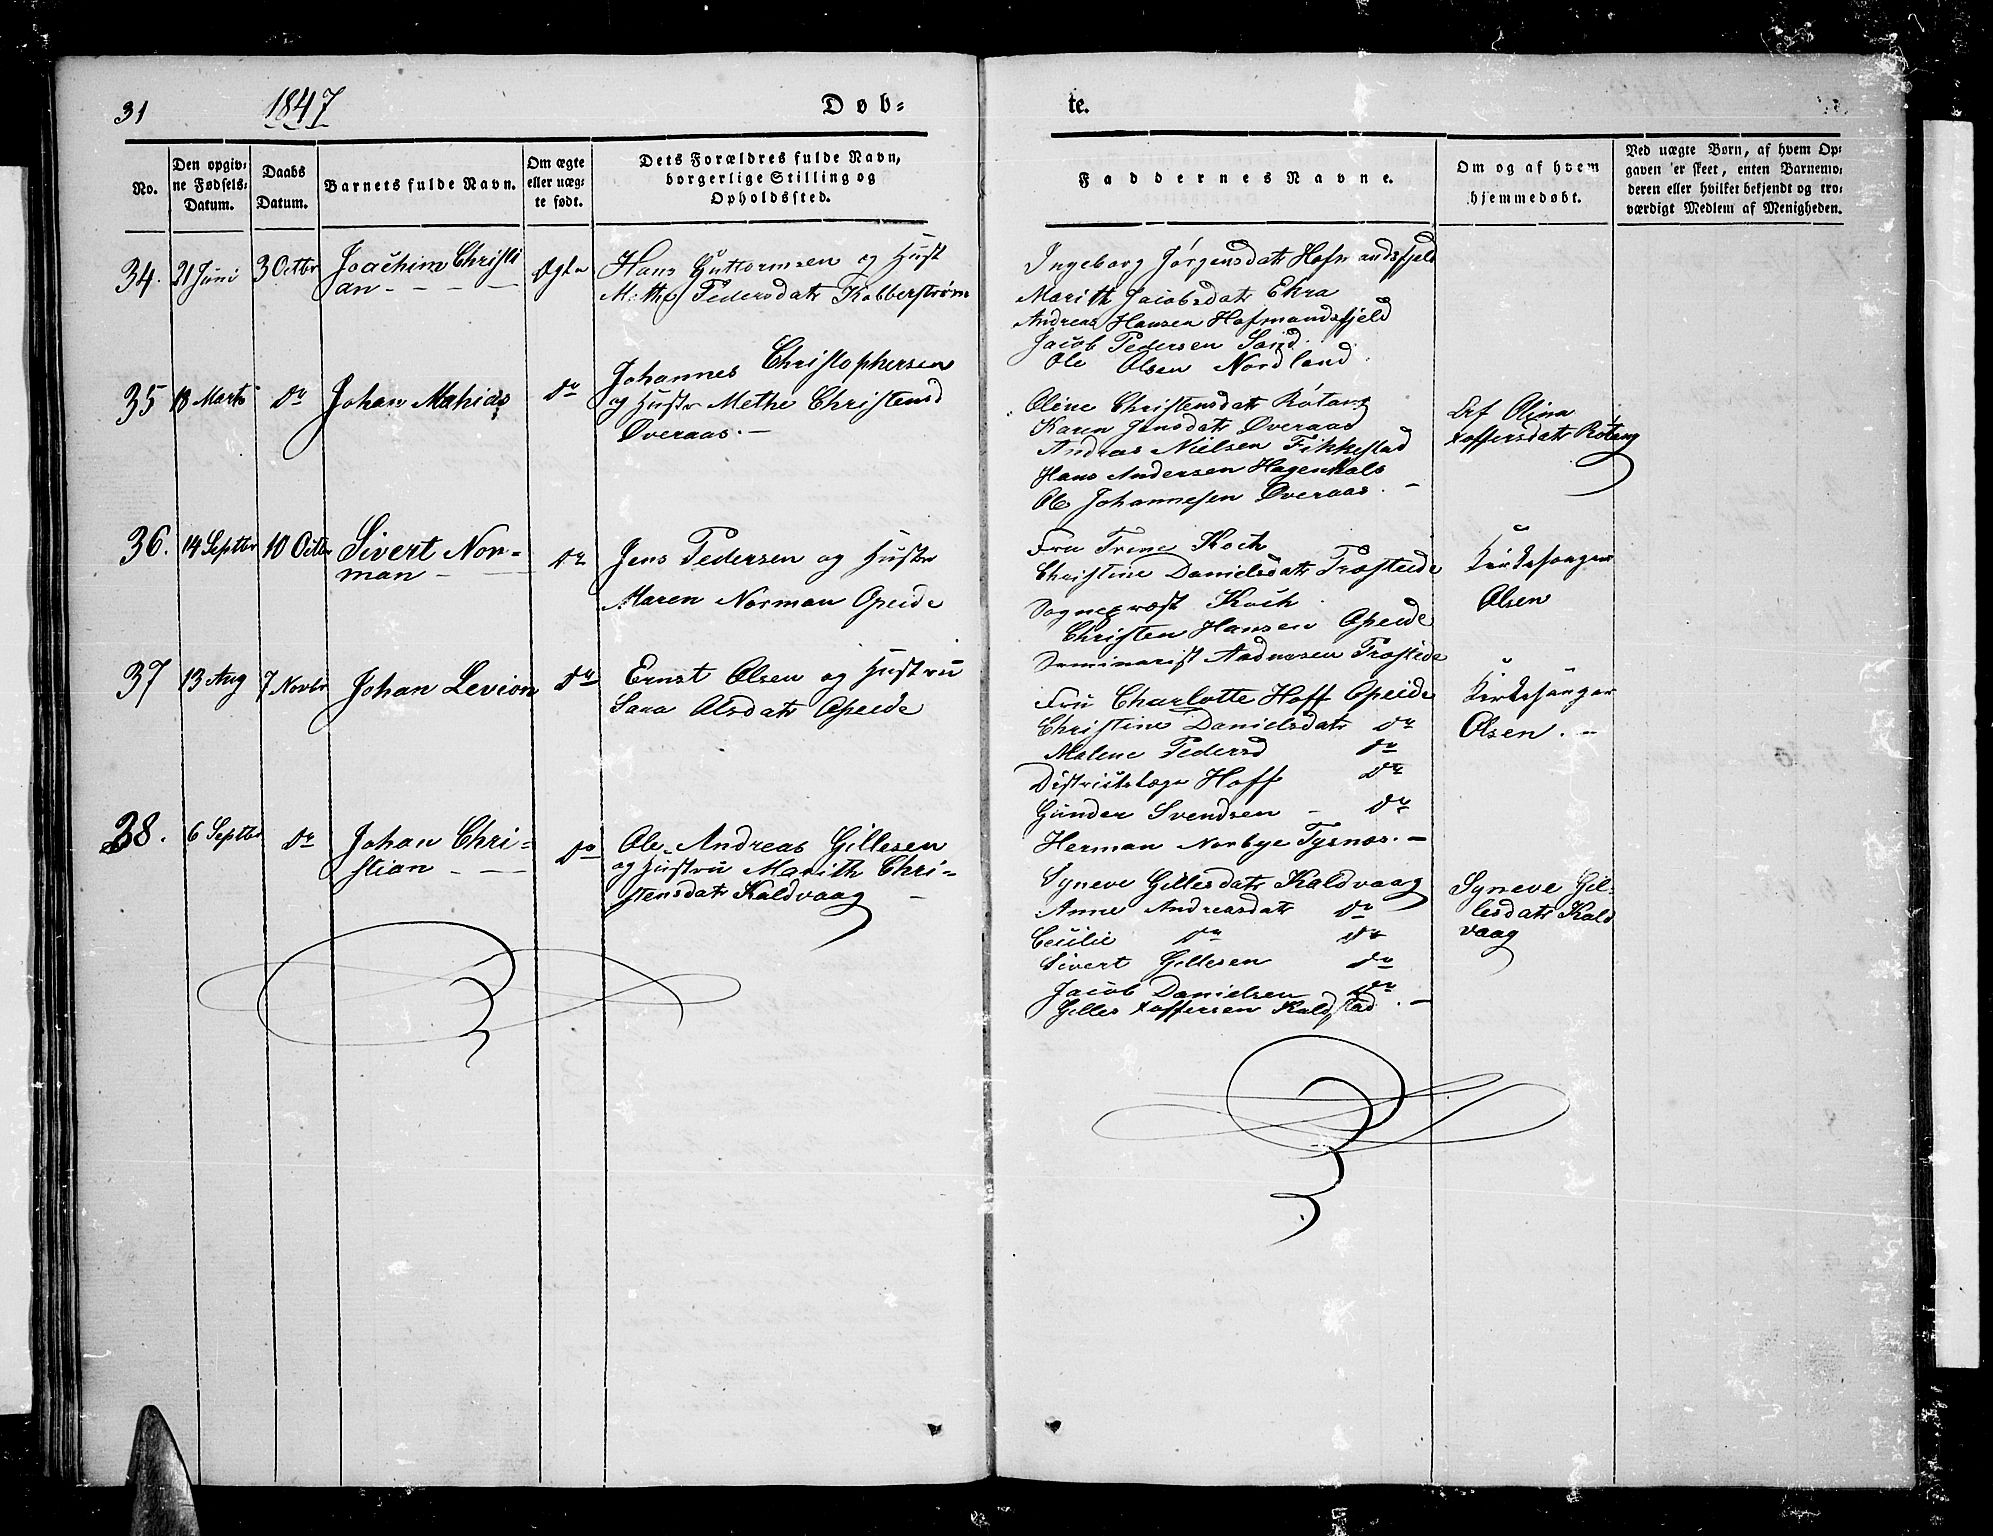 31 1847 Døb-
No. Den opgivne Fødsels-Datum. Daabs Datum. Barnets fulde Navn. Om ægte eller uægte født. Dets Forældres fulde Navn, borgerlige Stilling og Opholdssted.
34. 21 Juni 3 Octbr Joachim Christi Ægte Hans Guttormsen og Hust
an - - - - Pedersdatr Kobberstrøm
Johannes Christophersen
35 18 Marts do Johan Mathias do og Hustr Methe Christensd
Øveraas. -
36. 14 Septbr 10 Octbr Sivert Nor- do Jens Pedersen og Hustr
man - - - Maren Norman Opeide
37 13 Aug 7 Novbr Johan Levion do Ernst Olsen og Hustru
Sara Olsdatr Opeide
38. 6 Septbr do Johan Chri- do Ole Andreas Gillesen
stian - - - og Hustru Marith Chri-
stensdatr Kaldvaag -
te.
Faddernes Navne. Om og af hvem hjemmedøbt. Ved uægte Børn, af hvem Opgaven er skeet, enten Barnemoderen eller hvilket bekjendt og troværdigt Medlem af Menigheden.
Ingeborg Jørgensdatr Hofmandsfjeld
Marith Jacobsdatr Ekra
Andreas Hansen Hofmandsfjeld
Jacob Pedersen Sand.
Ole Olsen Nordland.
Oline Christensdatr Rotang
Karen Jensdatr Øveraas
Andreas Nielsen Fikkestad
Hans Andersen Hagenhals
Ole Johannesen Øveraas. -
Af Olina
Xoffersdatr Rotang
Fru Trine Koch
Christine Danielsdatr Træsteide
Sognepræst Koch.
Christen Hansen Opeide
Seminarist Træsteide
Kirkesanger
Olsen
Fru Charlotte Hoff Opeide
Christine Danielsdatr do
Malene Pedersd do
Districtslæge Hoff do
Gunder Svendsen - do
Herman Norbye Tysnæs. -
Kirkesanger
Olsen. -
Syneve Gillesdatr Kaldvaag
Anne Andreasdatr do
Cecilie do do
Sivert Gillesen do
Jacob Danielsen do
Gilles Xoffersen Kaldstad. -
Syneve Gil-
lesdatr Kald
vaag